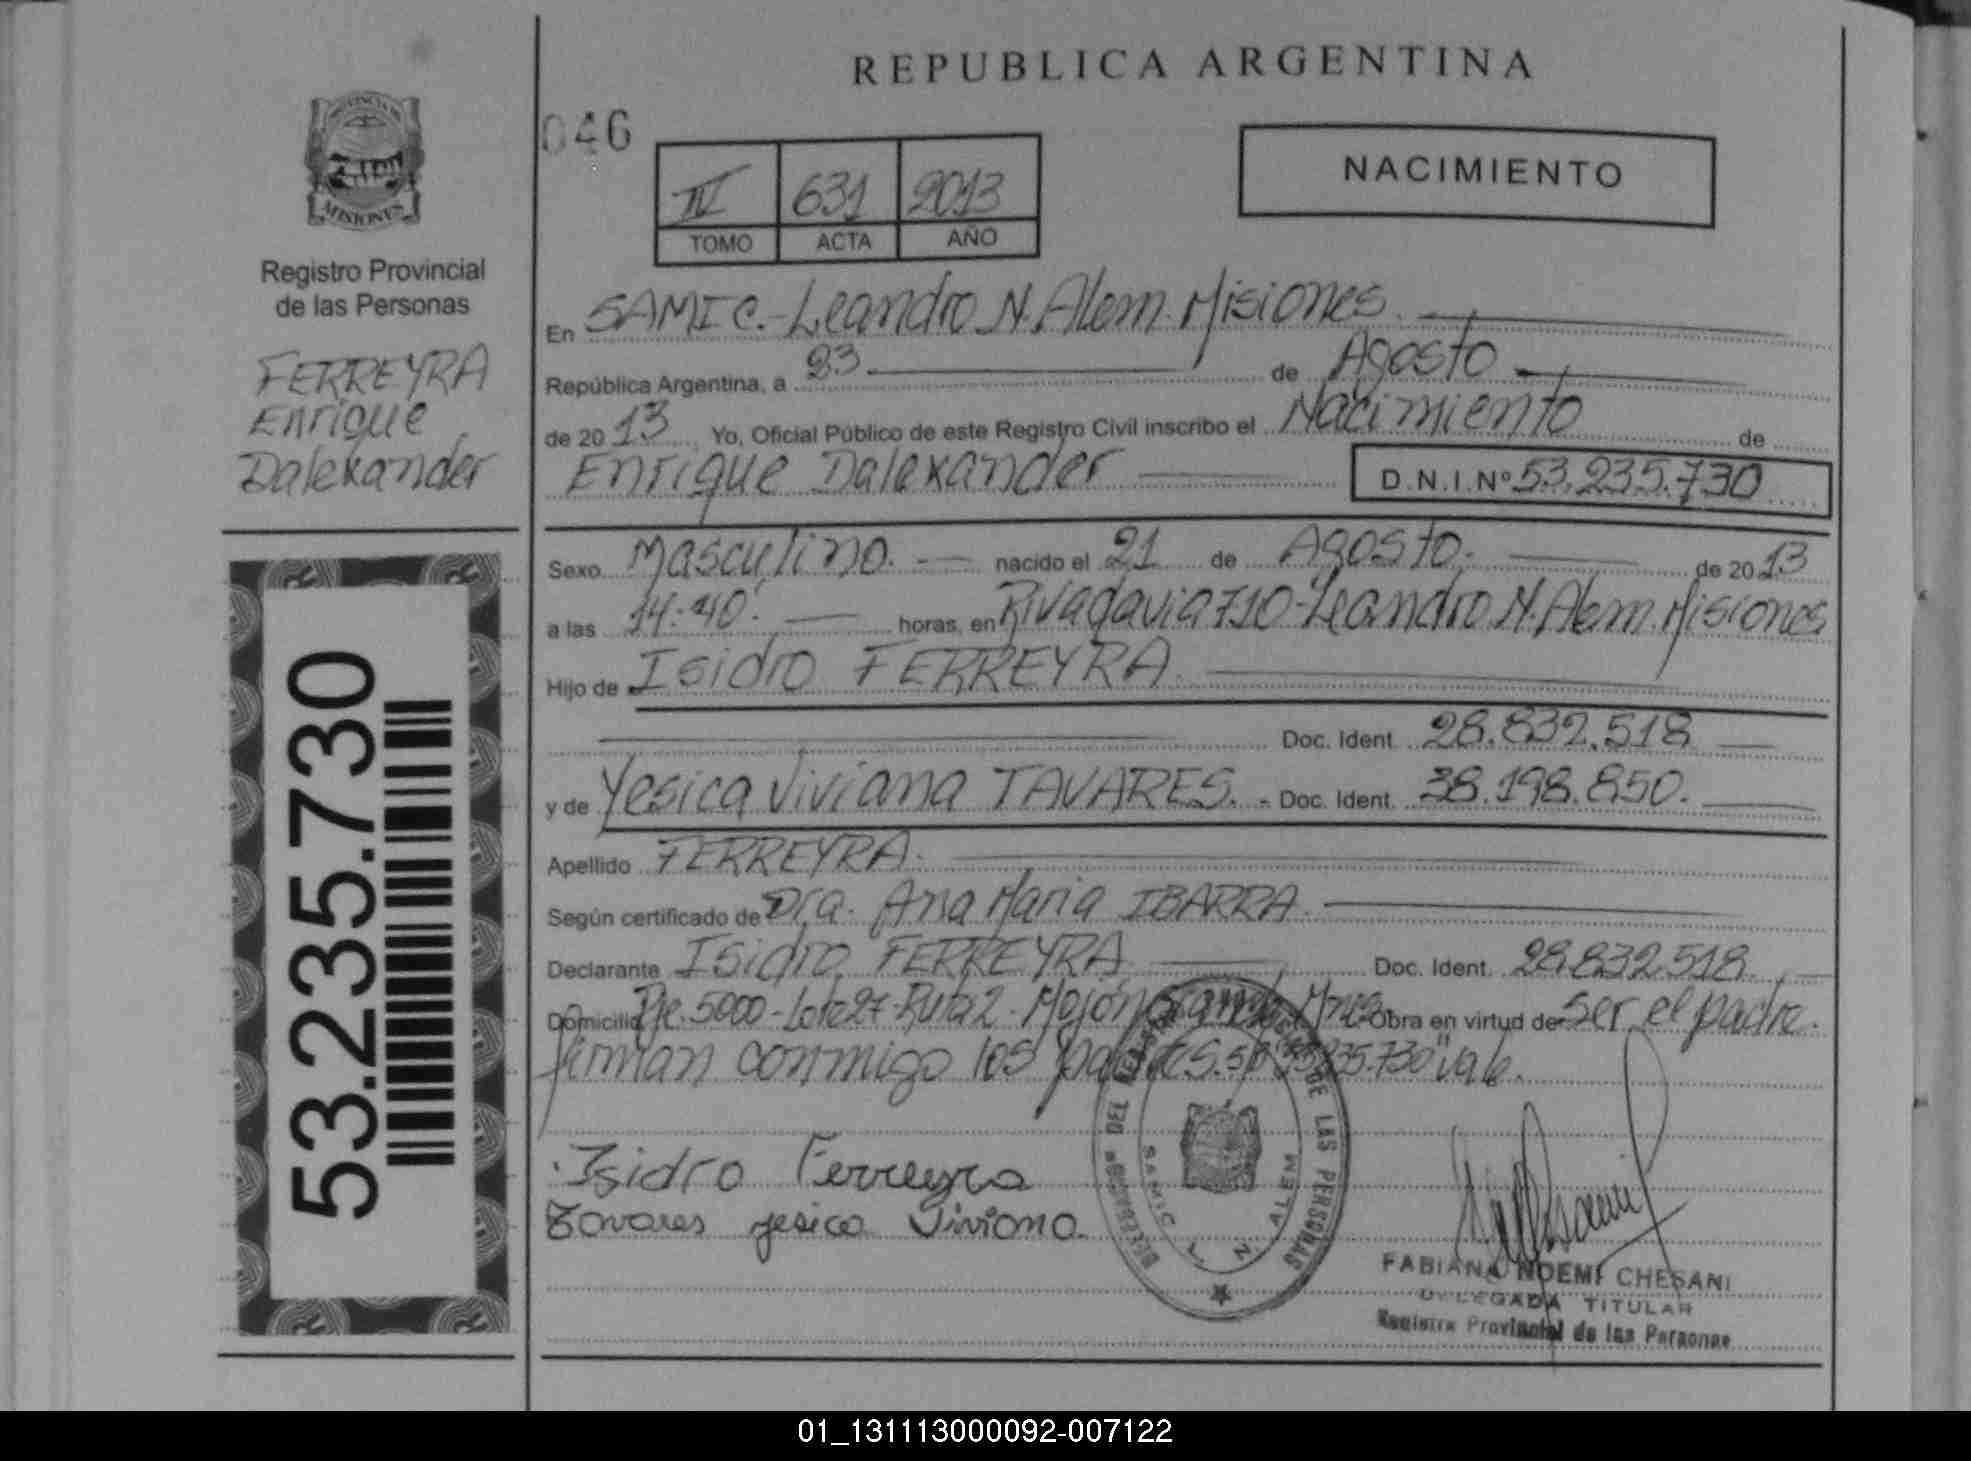 REPUBLICA ARGENTINA
046
IV 631 2013
TOMO ACTA AÑO
NACIMIENTO
PROVINCIA DE
MISIONES
Registro Provincial
de las Personas
FERREYRA
Enrique
Dalexander
53.235.730
En SAMIC.-Leandro N. Alem. Misiones.
República Argentina, a 23 de Agosto
de 2013 Yo, Oficial Público de este Registro Civil inscribo el Nacimiento de
Enrique Dalexander D.N.I.Nº 53.235.730
Sexo Masculino. nacido el 21 de Agosto. de 2013
a las 14:40. horas, en Rivadavia 710-Leandro N. Alem. Misiones
Hijo de Isidro FERREYRA
Doc. Ident. 28.832.518
y de Yesica Viviana TAVARES. - Doc. Ident. 38.198.850.
Apellido FERREYRA.
Según certificado de Dra. Ana Maria IBARRA.
Declarante Isidro FERREYRA Doc. Ident. 28.832.518.
Domicilio Pje. 5000-Lote 27-Ruta 2-Mojón Grande Mnes. Obra en virtud de ser el padre.
firman conmigo los padres. 235.730" vale.
Isidro Ferreyra
Tavares yesica Viviana.
DE LAS PERSONAS
SAMIC L. N. ALEM
FABIANA NOEMI CHESANI
DELEGADA TITULAR
Registro Provincial de las Personas
01_131113000092-007122